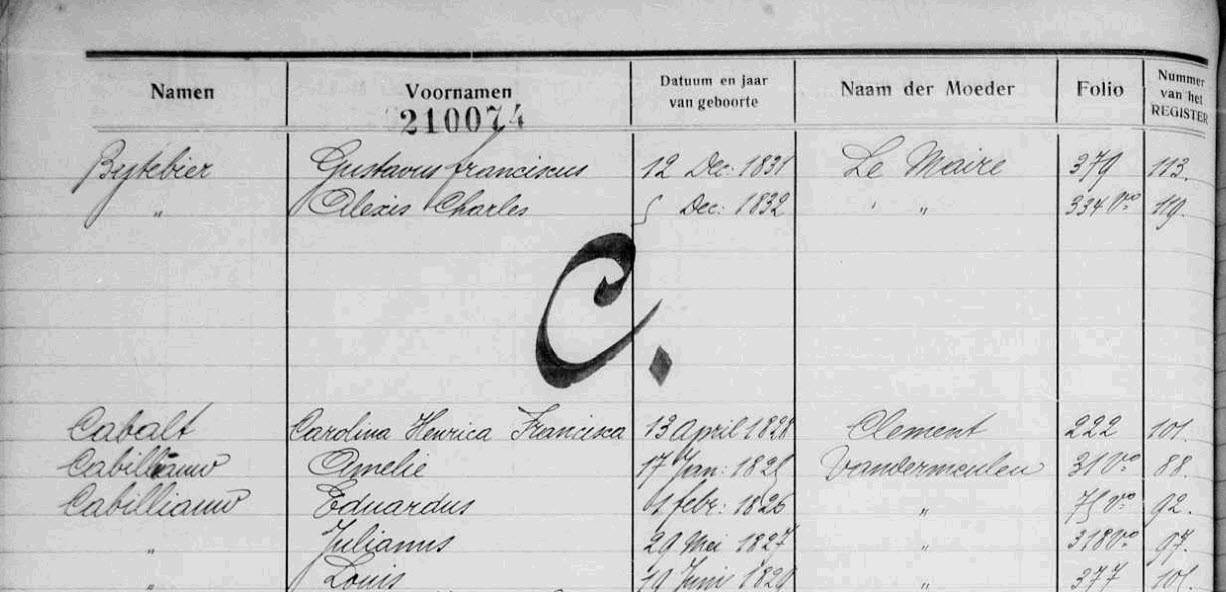 Namen Voornamen Datuum en jaar van geboorte Naam der Moeder Folio Nummer van het REGISTER
210074
Bytebier Gustavus franciscus 12 Dec: 1831 Le Maire 379 113.
" Alexis Charles 5 Dec: 1832 " 334 Vo 119.
C.
Cabalt Carolina Henrica Francisca 13 April 1828 Clement 222 101.
Cabilliauw Amelie 17 Jan: 1825 Vandermeulen 31 Vo 88.
Cabilliauw Eduardus febr: 1826 " 75 Vo 92.
" Julianus 29 Mei 1827 " 318 Vo 97.
" Louis 19 Juni 1829 " 377